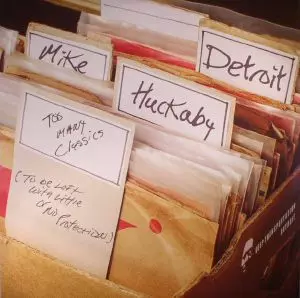 Mike
Detroit
Huckaby
Too
Many
Classics
(To be left
with little
or no
Protection)